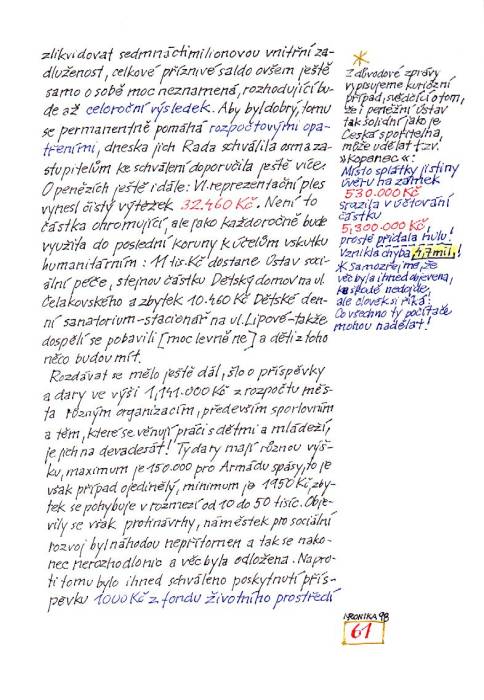 zlikvidovat sedmnáctimilionovou vnitřní za-
dluženost, celkové příznivé saldo ovšem ještě
samo o sobě moc neznamená, rozhodující bu-
de až celoroční výsledek. Aby byl dobrý, tomu
se permanentně pomáhá rozpočtovými opa-
třeními, dneska jich Rada schválila osm a za-
stupitelům ke schválení doporučila ještě více.
O penězích ještě i dále: VI. reprezentační ples
vynesl čistý výtěžek 32.460 Kč. Není to
částka ohromující, ale jako každoročně bude
využita do poslední koruny k účelům vskutku
humanitárním: 11 tis. Kč dostane Ústav soci-
ální péče, stejnou částku Dětský domov na ul.
Čelakovského a zbytek 10.460 Kč Dětské den-
ní sanatorium-stacionář na ul. Lipové - takže
dospělí se pobavili [moc levně ne] a děti z toho
něco budou mít.
Rozdávat se mělo ještě dál, šlo o příspěvky
a dary ve výši 1,141.000 Kč z rozpočtu měs-
ta různým organizacím, především sportovním
a těm, které se věnují práci s dětmi a mládeží,
je jich na devadesát! Ty dary mají různou výš-
ku, maximum je 150.000 pro Armádu spásy, to je
však případ ojedinělý, minimum je 1950 Kč, zby-
tek se pohybuje v rozmezí od 10 do 50 tisíc. Obje-
vily se však protinávrhy, náměstek pro sociální
rozvoj byl náhodou nepřítomen a tak se nako-
nec nerozhodlo nic a věc byla odložena. Napro-
ti tomu bylo ihned schváleno poskytnutí přís-
pěvku 1000 Kč z fondu životního prostředí
*
Z důvodové zprávy
vypisujeme kuriózní
případ, svědčící o tom,
že i peněžní ústav
tak solidní jako je
Česká spořitelna,
může udělat tzv.
»kopanec«:
Místo splátky jistiny
úvěru na zámek
530.000 Kč
srazila v účtování
částku
5,300.000 Kč,
prostě přidala nulu!
Vznikla chyba 4,7 mil.!
* Samozřejmě, že
věc byla ihned objevena,
ke škodě nedojde,
ale člověk si říká:
Co všechno ty počítače
mohou nadělat!
KRONIKA 98
61